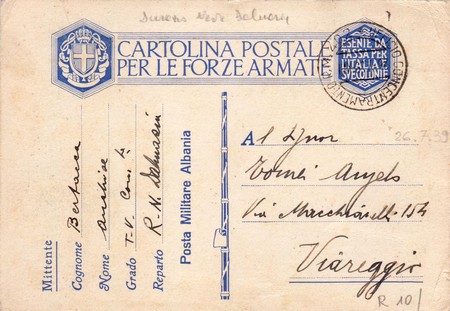 CARTOLINA POSTALE
PER LE FORZE ARMATE
ESENTE DA
TASSA PER
L'ITALIA E
SVE COLONIE
CONCENTRAMENTO
26.7.39
Mittente
Cognome Bertacca
Nome Anchise
Grado T.V. Com.te
Reparto R.N.
Posta Militare Albania
A l Signor
Tomei Angelo
Via Macchiavelli 154
Viareggio
R 10/